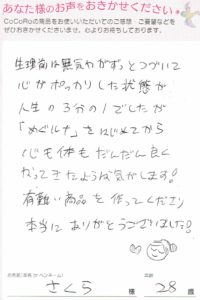 あなた様のお声をおきかせください
CoCoRoの商品をお使いいただいてのご感想・ご要望などを
ぜひおきかせくださいませ。心よりお待ちしております。
生理前は悪気やがずっとつづいて
心がポッカリした状態が
人生の3分の1でしたが
「めぐルナ」をはじめてから
心も体もだんだん良く
なってきたような気がします!
有難い商品を作ってくださり
本当にありがとうございました!
お名前(本名 or ペンネーム)
年齢
さくら 様 28 歳